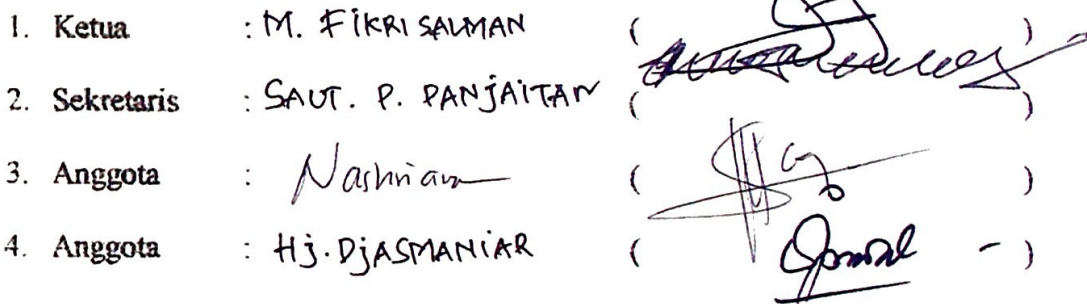 1. Ketua : M. FIKRI SALMAN ( )
2. Sekretaris : SAUT. P. PANJAITAN ( )
3. Anggota : Nashriana ( )
4. Anggota : Hj. DjASMANIAR ( - )